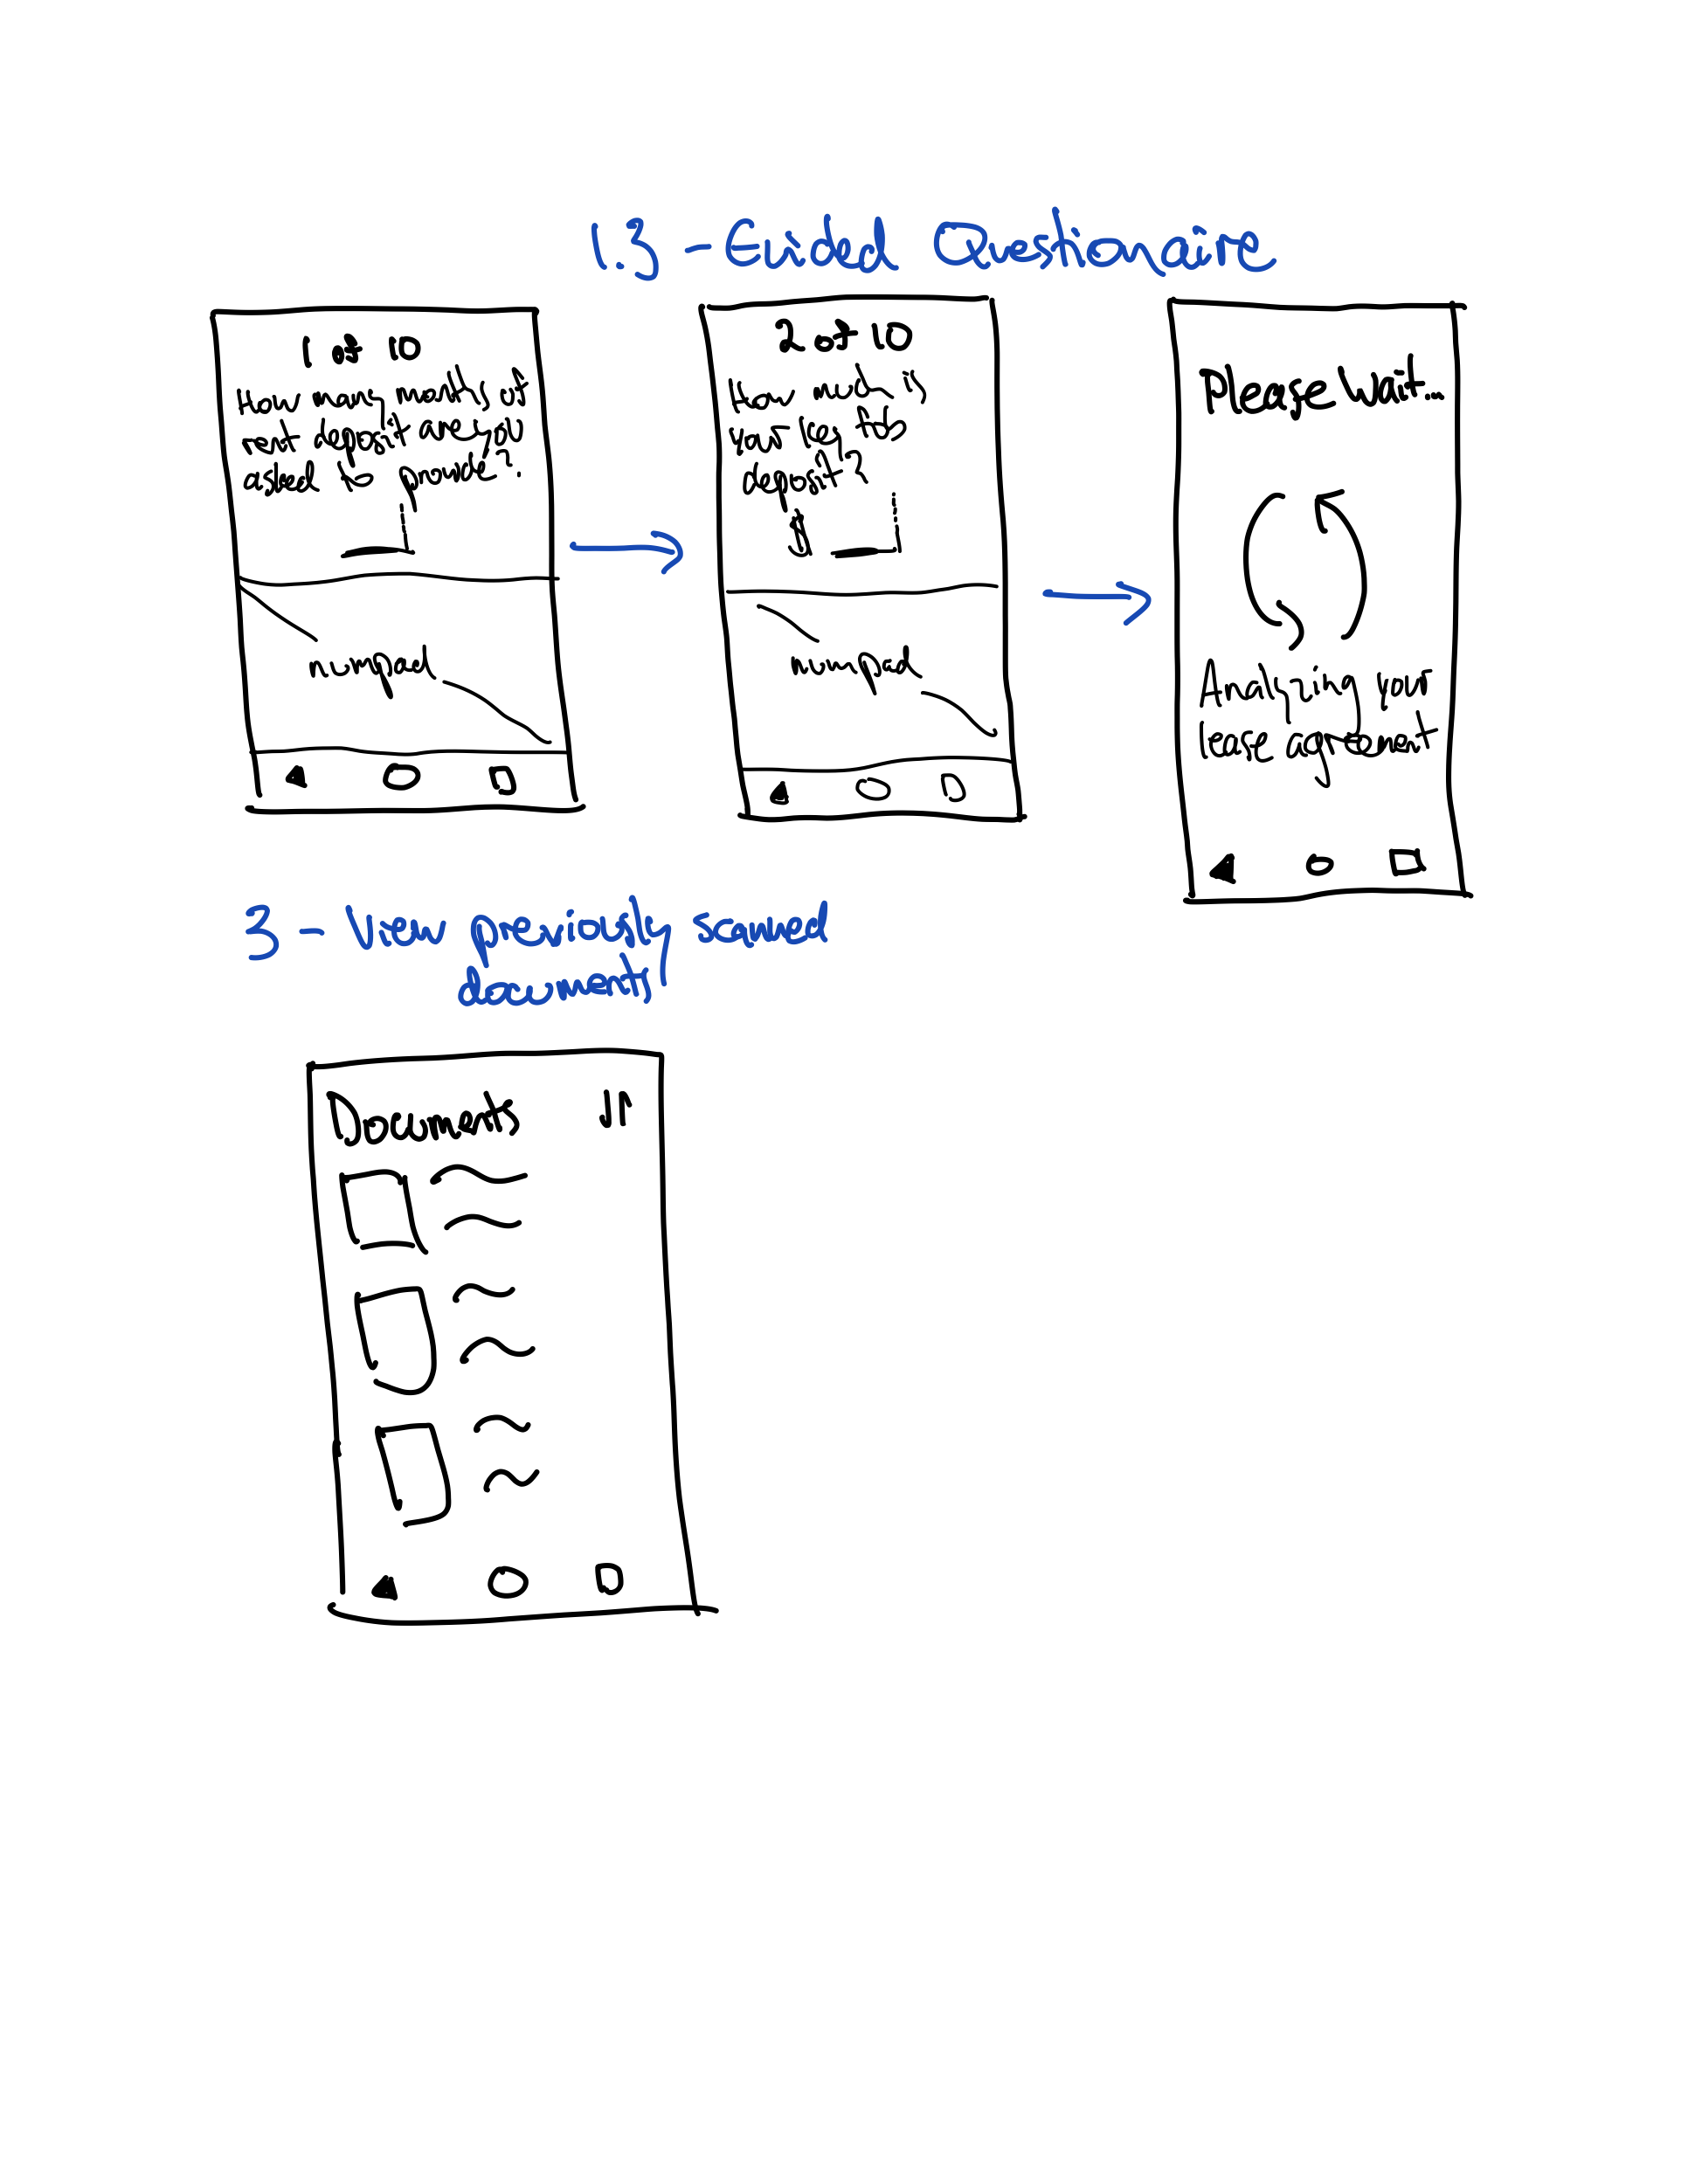 1.3 - Guided Questionaire
1 of 10
How many months of
rent deposit are you
asked to provide?
numpad
2 of 10
How much is
your key fob
deposit?
$
numpad
Please wait...
Analyzing your
lease agreement
3 - View previously scanned
documents
Documents